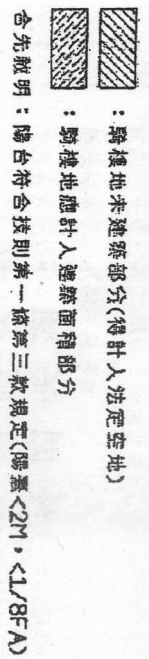 ：騎樓地未建築部分(得計入法定空地)
：騎樓地應計入建築面積部分
合先敘明：陽台符合技則第一條第三款規定(陽臺<2M，<1/8FA)